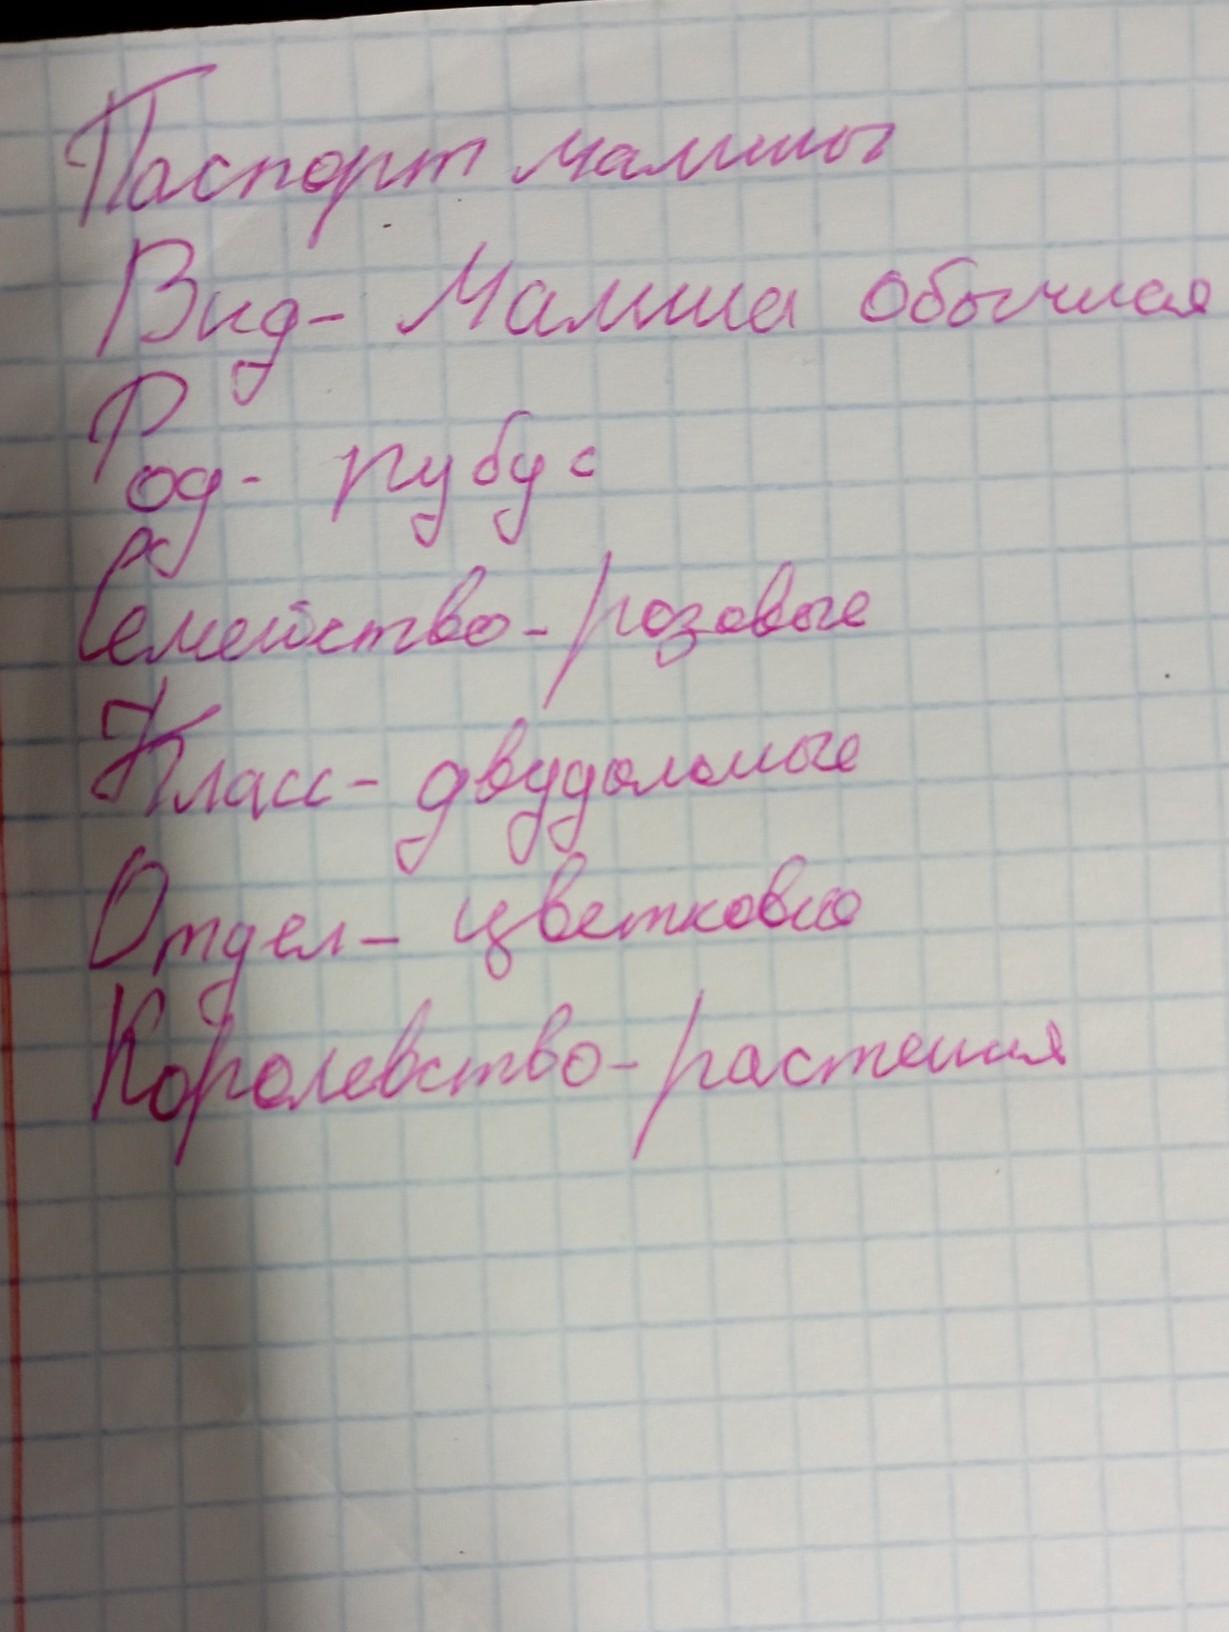 Паспорт малины
Вид- Малина обычная
Род- рубус
Семейство- розовые
Класс- двудольные
Отдел- цветковые
Королевство- растения